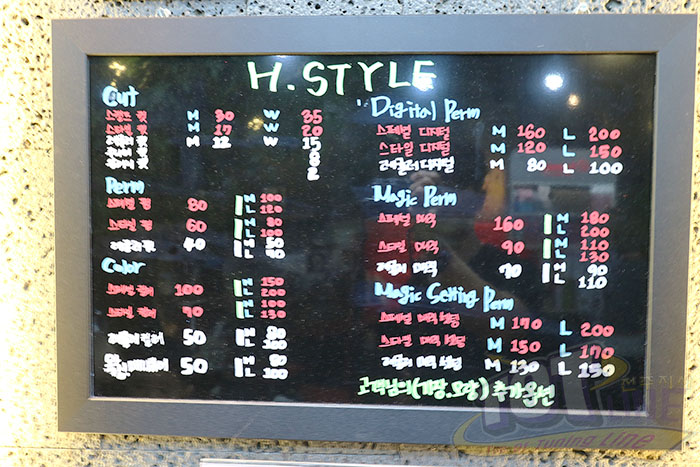 H. STYLE
Cut
스페셜 컷 M 30 W 35
스타일 컷 M 17 W 20
컷 M 12 15
8
Perm
스페셜 펌 80 M 100
L 120
스타일 펌 60 M 80
L 100
펌 40 M 50
Color
스페셜 컬러 100 M 150
L 200
스타일 컬러 70 M 100
L 130
컬러 50 M 80
L 100
50 M 80
L 100
Digital Perm
스페셜 디지털 M 160 L 200
스타일 디지털 M 120 L 150
디지털 M 80 L 100
Magic Perm
스페셜 매직 160 M 180
L 200
스타일 매직 90 M 110
L 130
매직 70 M 90
L 110
Magic Setting Perm
스페셜 매직 셋팅 M 170 L 200
스타일 매직 셋팅 M 150 L 170
매직 셋팅 M 130 L 150
고객님의(기장.모량) 추가옵션
Tuning Line